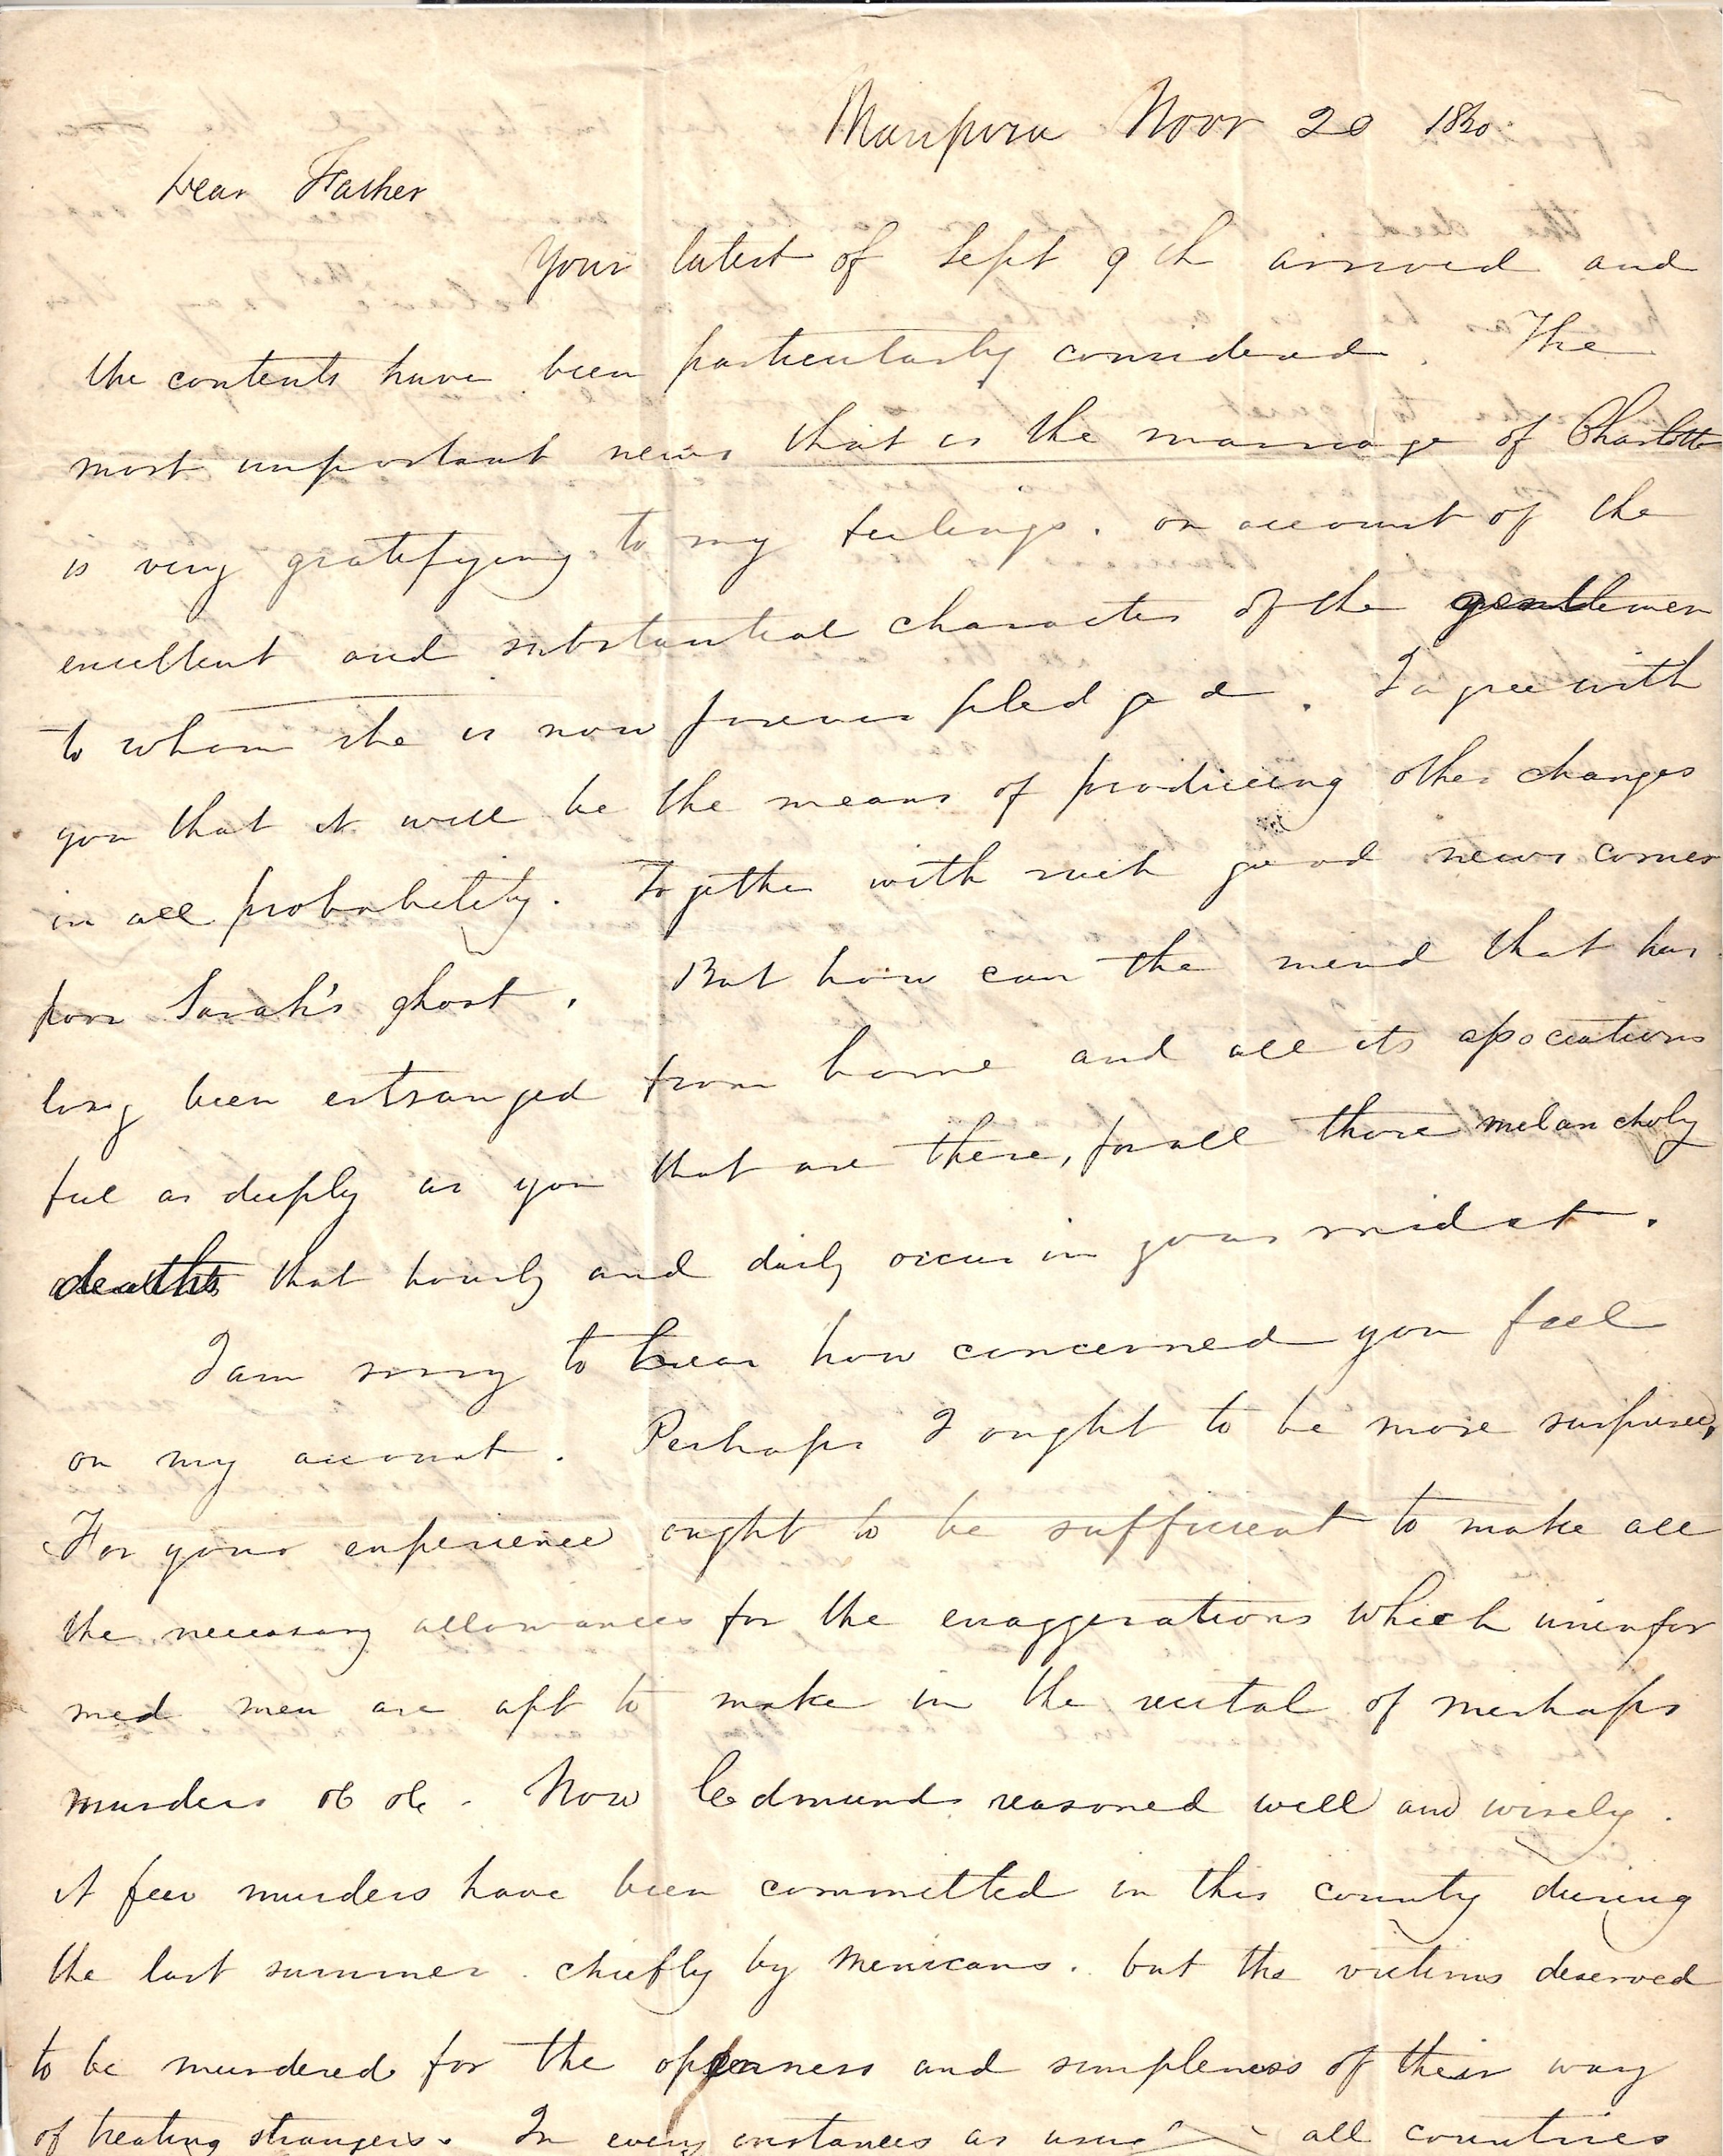 Mariposa Novr 20 1850.
Dear Father
Your latest of Sept 9th arrived and
the contents have been particularly considered. The
most important news that is the marriage of Charlotte
is very gratifying to my feelings. on account of the
excellent and substantial character of the gentlemen
to whom she is now forever pledged. I agree with
you that it will be the means of producing other changes
in all probability. Together with such good news comes
poor Sarah's ghost. But how can the mind that has
long been estranged from home and all its associations
feel as deeply as you that are there, for all those melancholy
deaths that hourly and daily occur in your midst.
I am sorry to hear how concerned you feel
on my account. Perhaps I ought to be more surprised,
For your experience ought to be sufficient to make all
the necessary allowances for the exaggerations which uninfor
med men are apt to make in the recital of mishaps
murders &c &c. Now Edmunds reasoned well and wisely.
A few murders have been committed in this county during
the last summer. chiefly by Mexicans. but the victims deserved
to be murdered for the openness and simpleness of their way
of treating strangers. In every instances as all countries